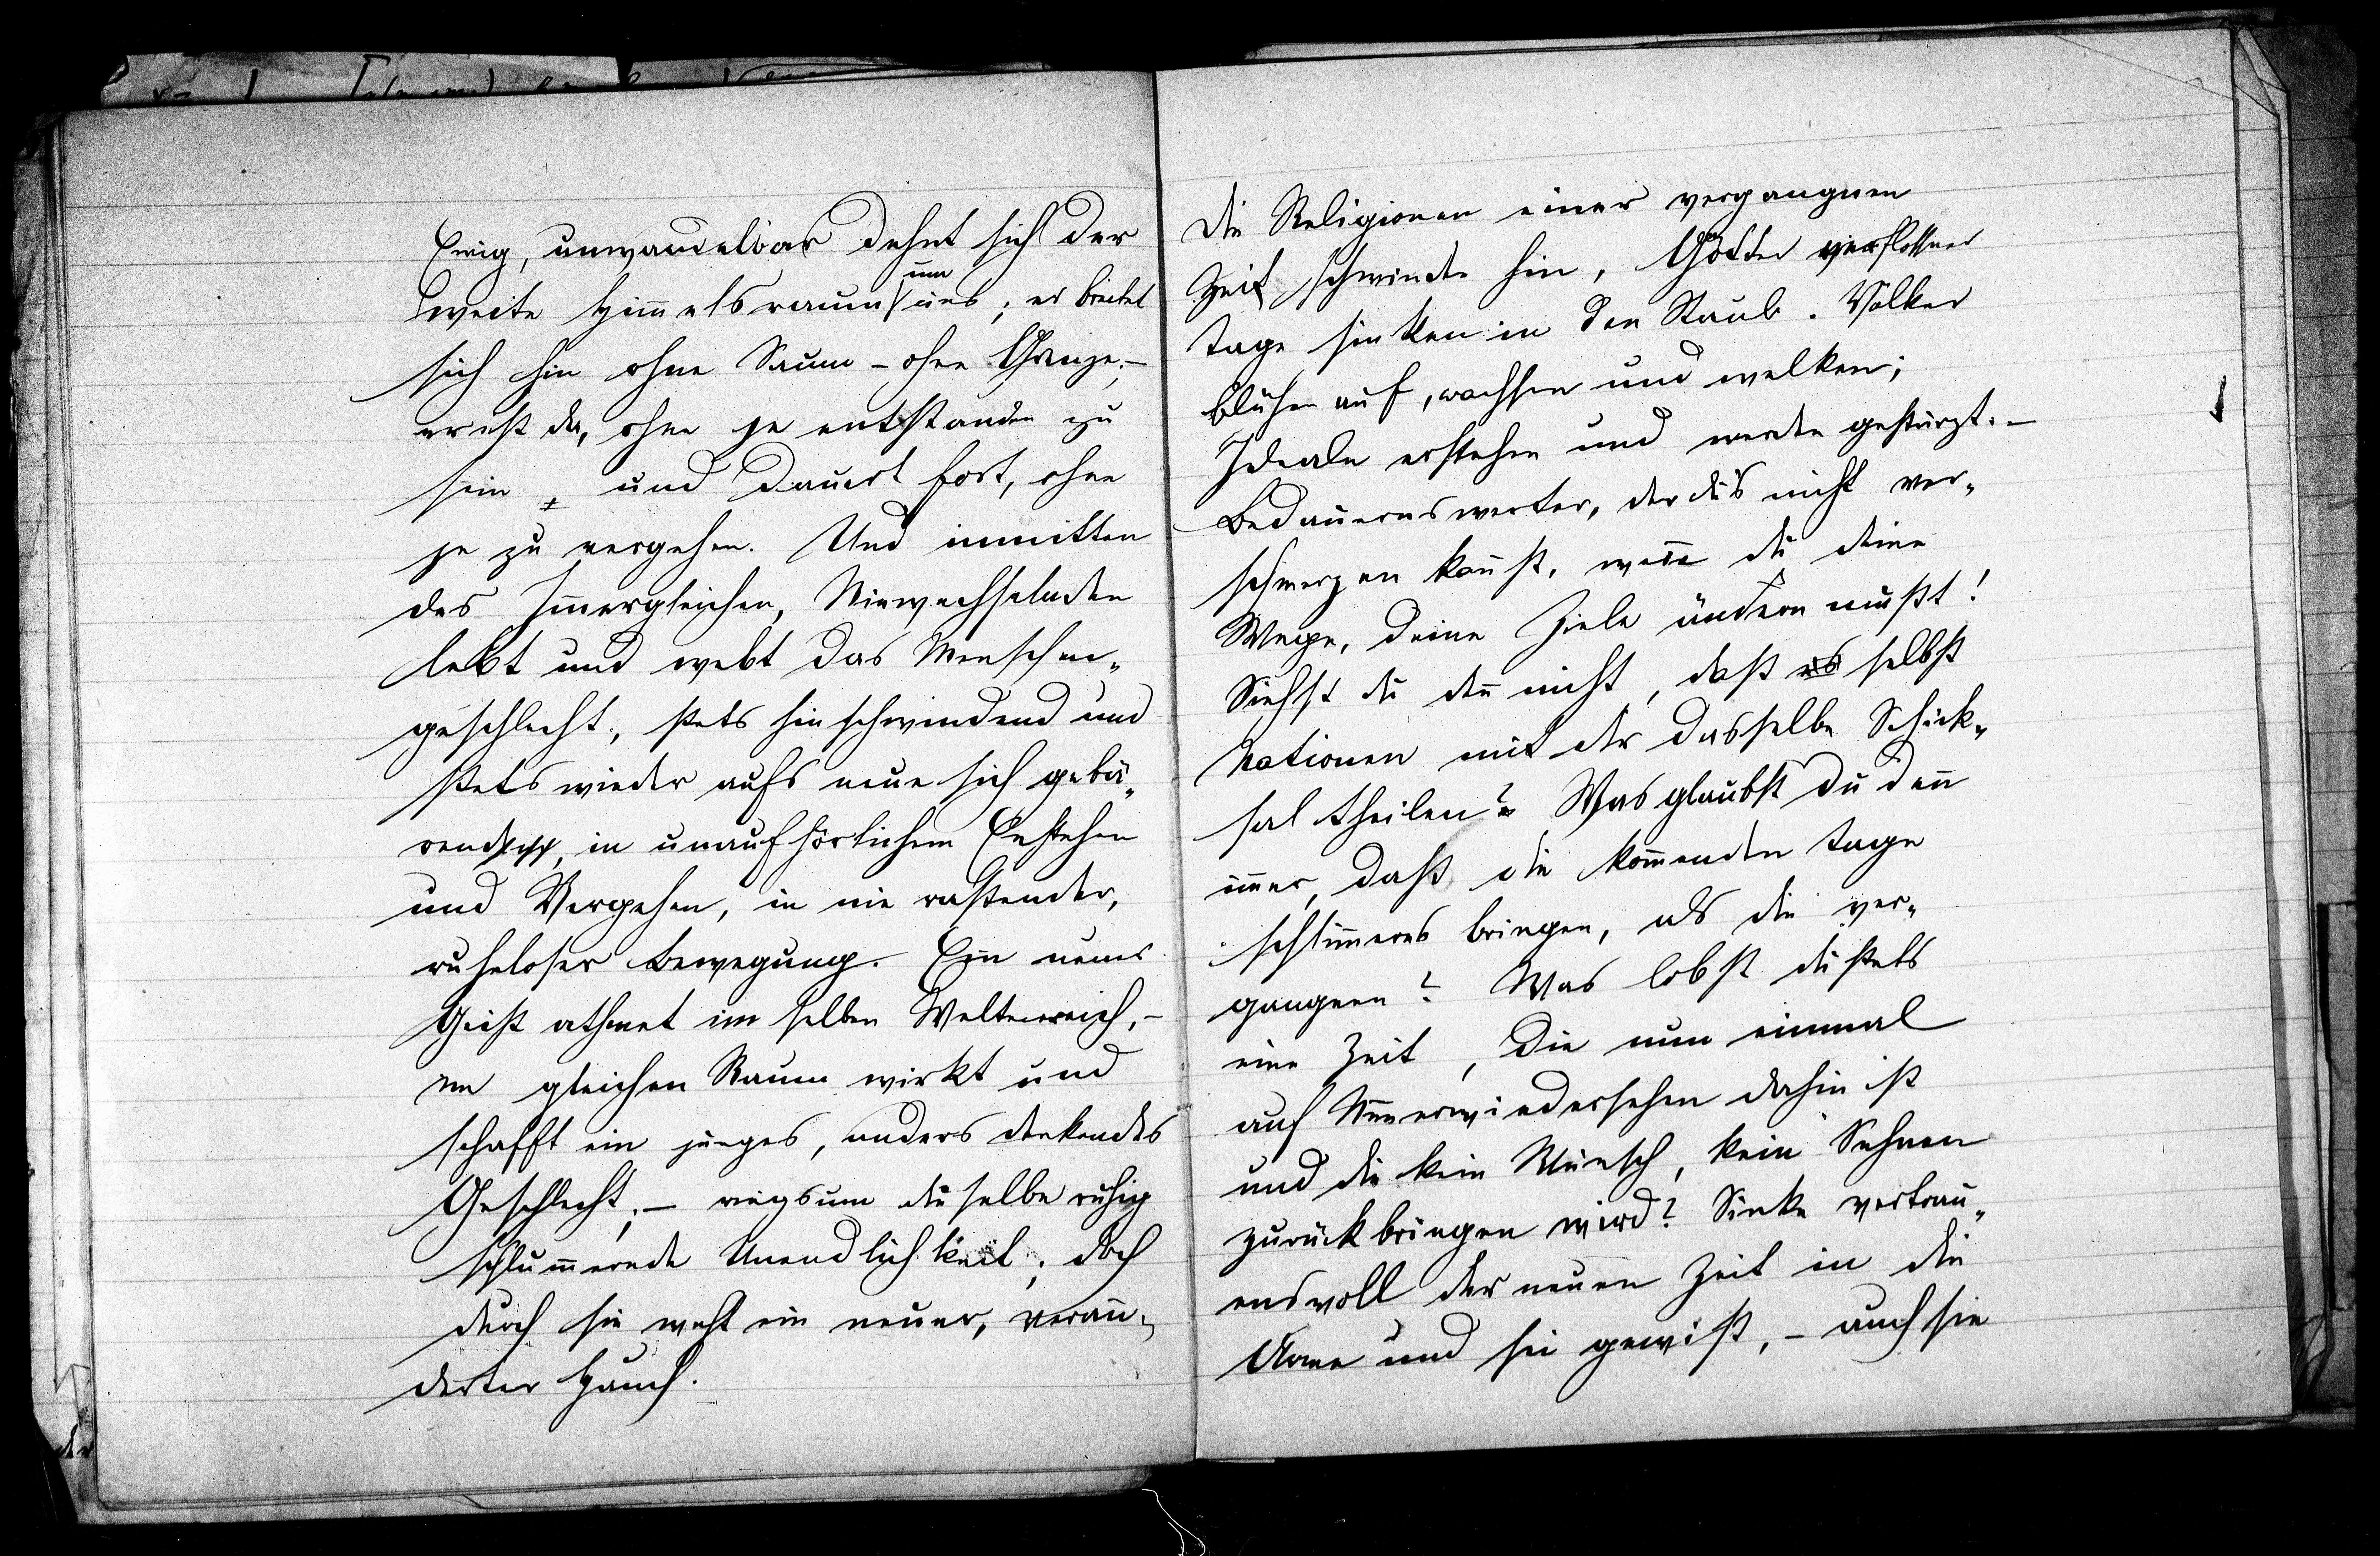 Ewig, unwandelbar dehnt sich der
weite Him̅elsraum um uns; er breitet
sich hin ohne Saum – ohne Grenze; –
er ist da, ohne je entstanden zu
sein, und dauert fort, ohne
je zu vergehen. Und inmitten
des Im̅ergleichen, Niewechselnden
lebt und webt das Menschen-
geschlecht, stets hinschwindend und
stets wieder aufs neue sich gebä-
rend, in unaufhörlichem Enstehen
und Vergehen, in nie rastender,
ruheloser Bewegung. Ein neuer
Geist athmet im selben Weltenreich, –
im gleichen Raum wirkt und
schafft ein junges, anders denkendes
Geschlecht; – ringsum dieselbe ruhig
schlum̅ernde Unendlichkeit; doch
durch sie weht ein neuer, verän-
derter Hauch.
Die Religionen einer vergangnen
Zeit schwinden hin, Götter verflossner
Tage sinken in den Staub. Völker
blühen auf, wachsen und welken;
Ideale erstehen und werden gestürzt. –
Bedauernswerter, der du's nicht ver-
schmerzen kan̅st, wen̅ du deine
Wege, deine Ziele ändern mußt!
Siehst du den̅ nicht, daß selbst
Nationen mit dir dasselbe Schick-
sal theilen? Was glaubst du den̅
im̅er, daß die kom̅enden Tage
schlim̅eres bringen, als die ver-
gangnen? Was lobst du stets
eine Zeit, die nun einmal
auf Nim̅erwiedersehen dahin ist
und die kein Wunsch, kein Sehnen
zurückbringen wird? Sinke vertrau-
ensvoll der neuen Zeit in die
Arme und sei gewiß, – auch sie